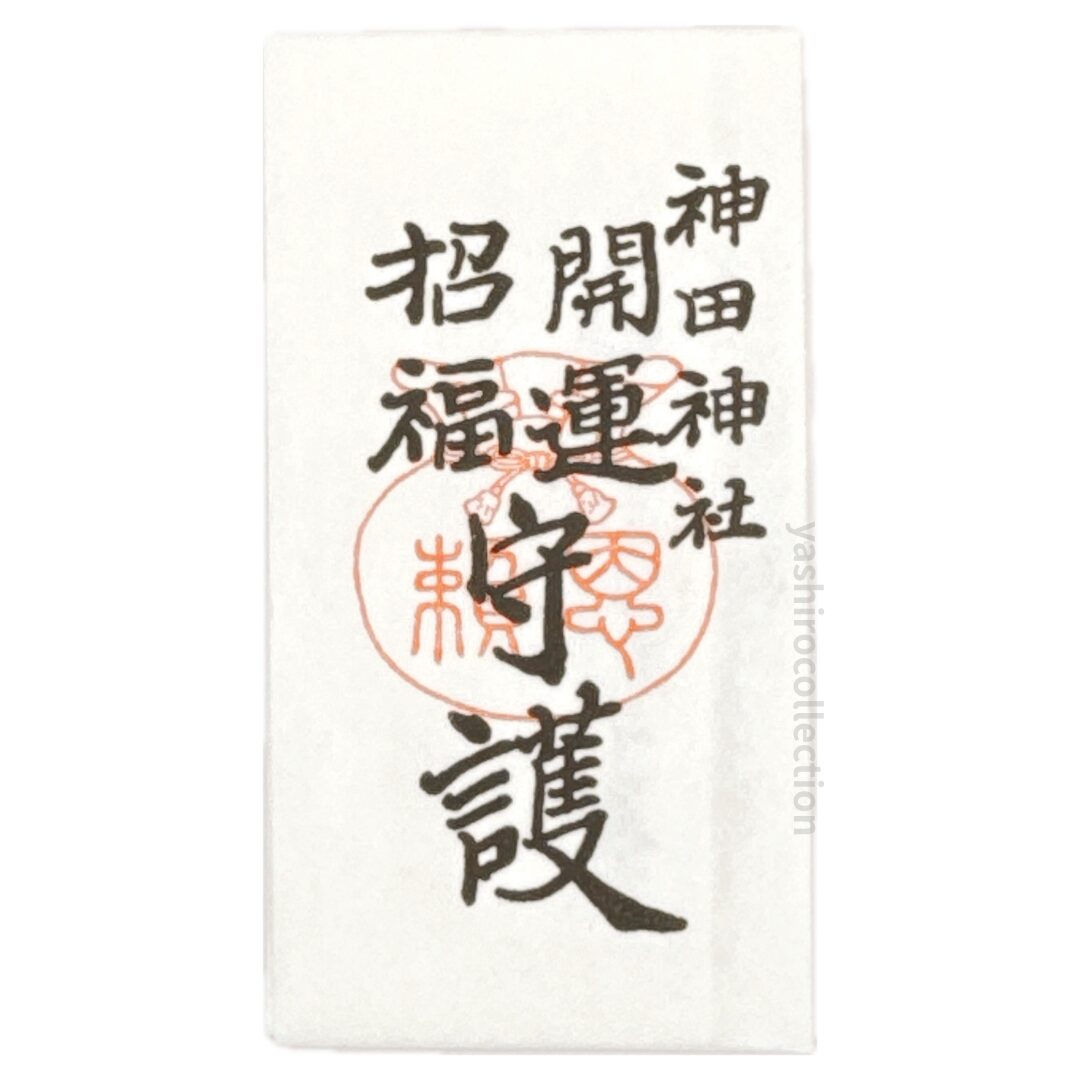 神田神社
開運
招福
守護
恩
頼
yashirocollection